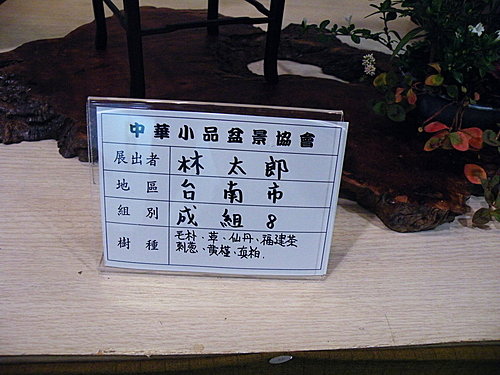 中華小品盆景協會
展出者 林太郎
地區 台南市
組別 成組8
樹種 毛朴、草、仙丹、福建茶
刺蔥、黃槿、真柏.